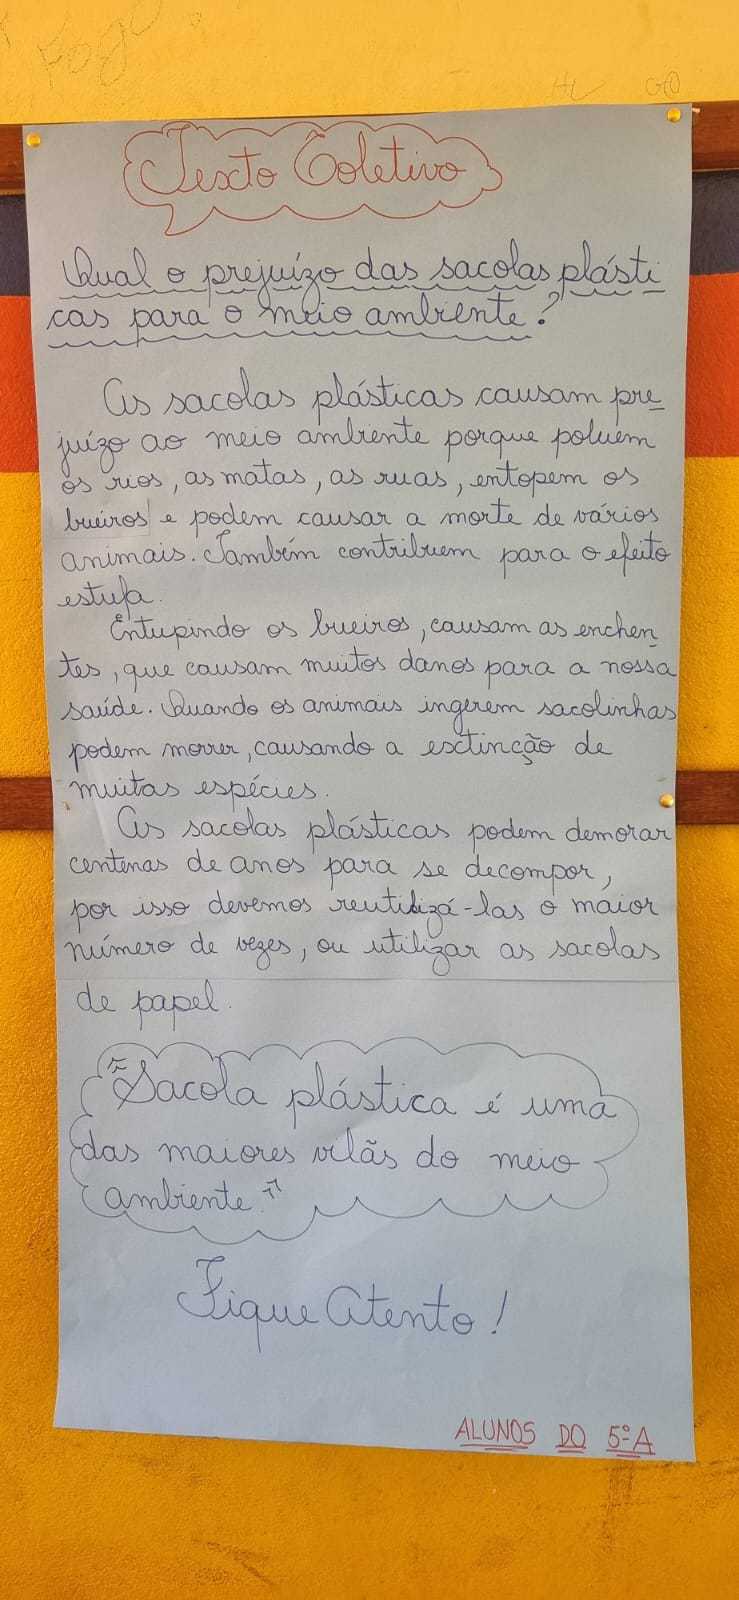 Texto Coletivo
Qual o prejuízo das sacolas plásti
cas para o meio ambiente?
As sacolas plásticas causam pre_
juízo ao meio ambiente porque poluem
os rios, as matas, as ruas, entopem os
bueiros e podem causar a morte de vários
animais. Também contribuem para o efeito
estufa.
Entupindo os bueiros, causam as enchen_
tes, que causam muitos danos para a nossa
saúde. Quando os animais ingerem sacolinhas
podem morrer, causando a extinção de
muitas espécies.
As sacolas plásticas podem demorar
centenas de anos para se decompor,
por isso devemos reutilizá-las o maior
número de vezes, ou utilizar as sacolas
de papel.
"Sacola plástica é uma
das maiores vilãs do meio
ambiente."
Fique Atento!
ALUNOS DO 5º A